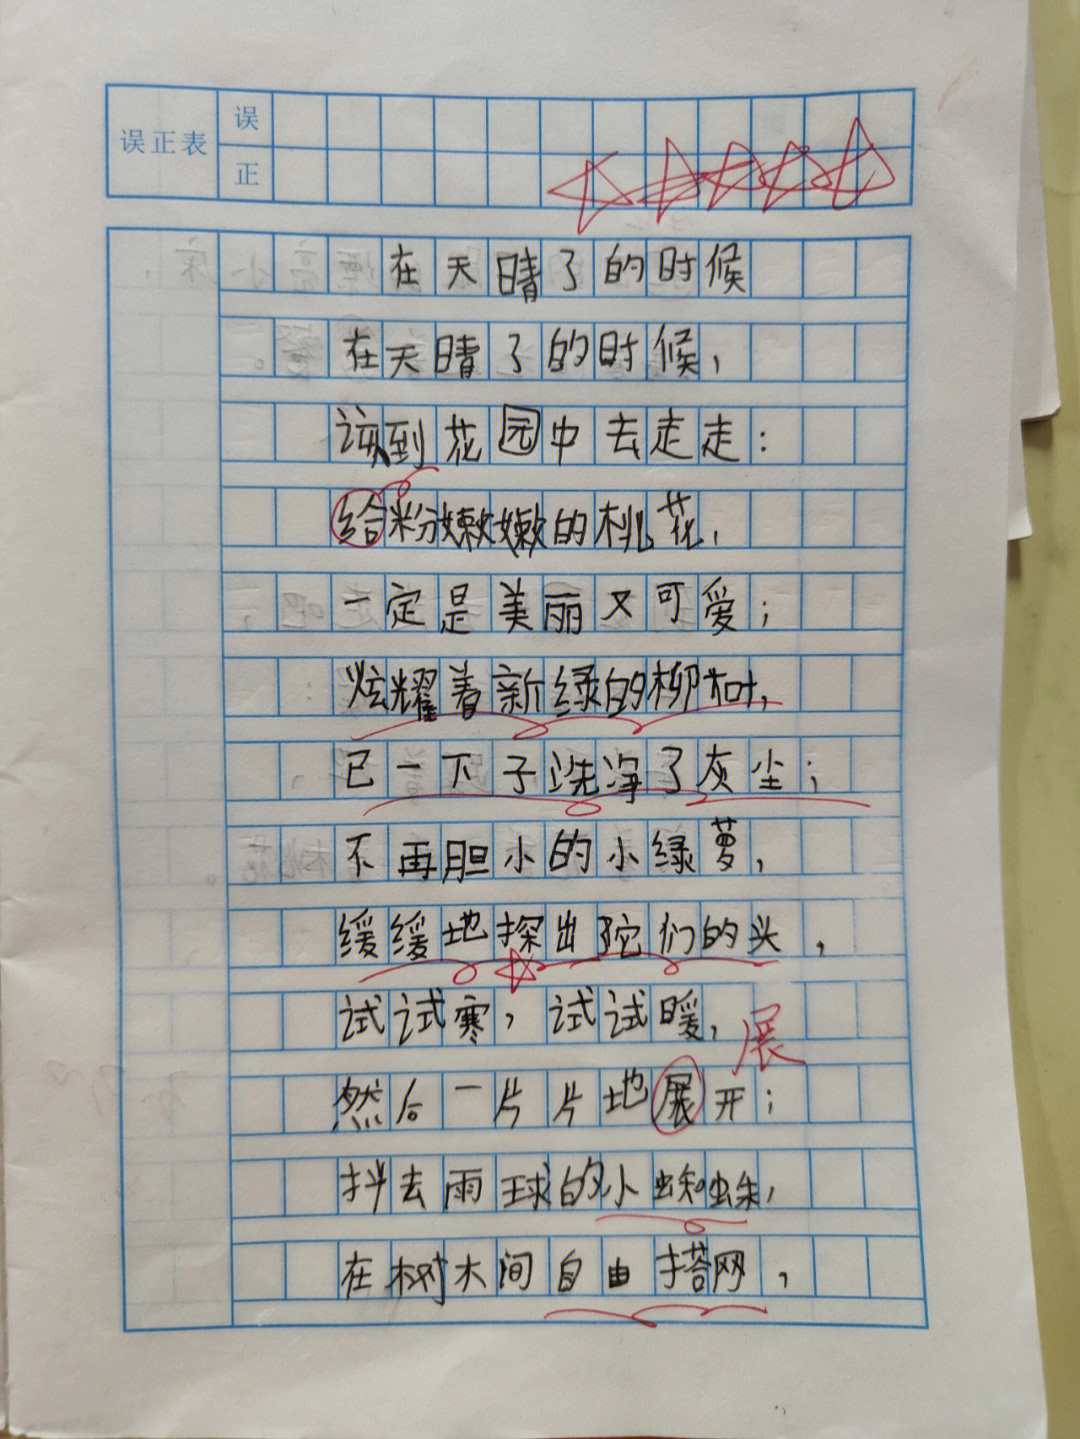 误正表
误
正
在天晴了的时候
在天晴了的时候，
该到花园中去走走：
给粉嫩嫩的桃花，
一定是美丽又可爱；
炫耀着新绿的柳叶，
已一下子洗净了灰尘；
不再胆小的小绿萝，
缓缓地探出了它们的头，
试试寒，试试暖，
展
然后一片片地展开；
抖去雨球的小蜘蛛，
在树木间自由搭网，